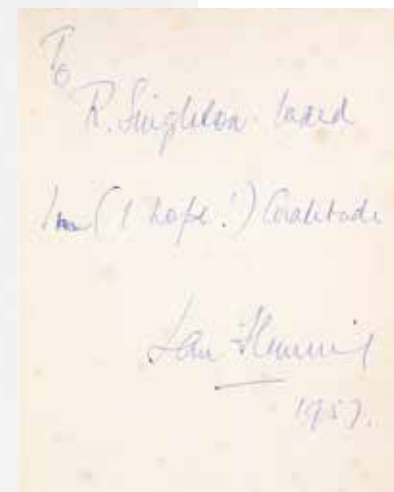 To
R. Singleton-Ward
In (I hope!) Gratitude
Ian Fleming
1957.